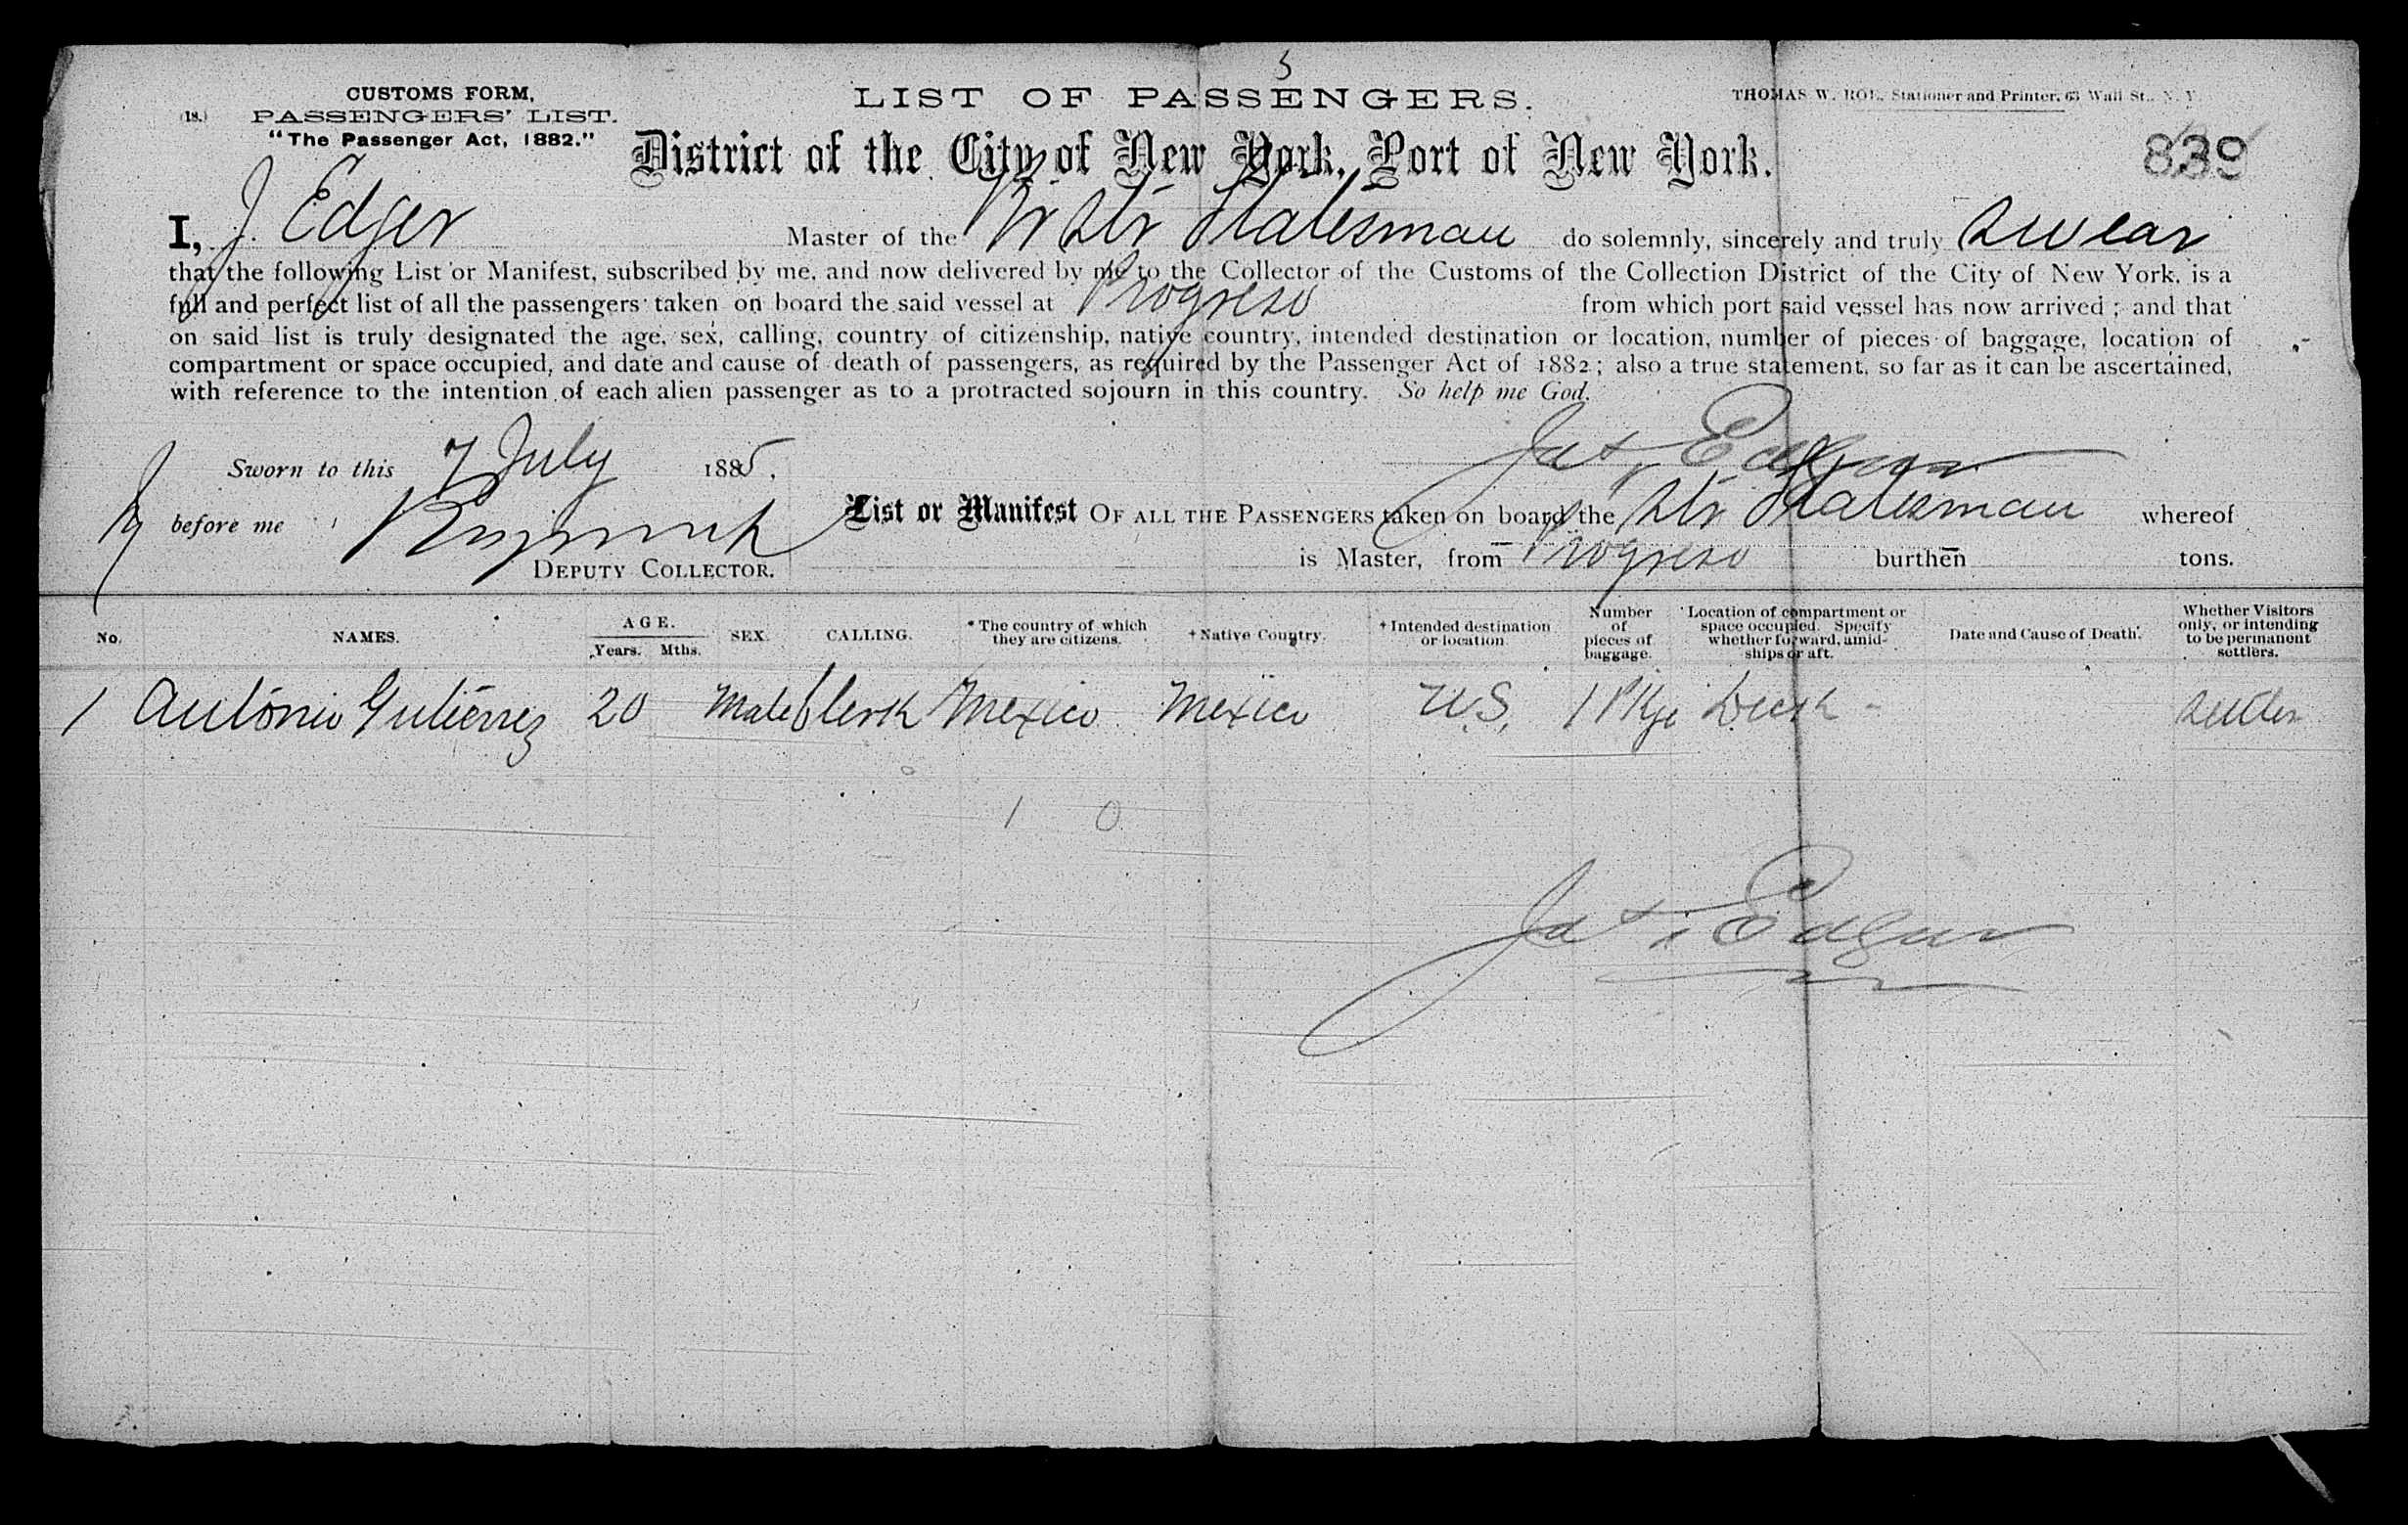 5
CUSTOMS FORM,
(18.) PASSENGERS' LIST.
"The Passenger Act, 1882."
LIST OF PASSENGERS.
THOMAS W. ROE, Stationer and Printer, 63 Wall St., N. Y.
District of the City of New York, Port of New York.
839
I, J. Edger Master of the Br Str Statesman do solemnly, sincerely and truly swear
that the following List or Manifest, subscribed by me, and now delivered by me to the Collector of the Customs of the Collection District of the City of New York, is a
full and perfect list of all the passengers taken on board the said vessel at Progreso from which port said vessel has now arrived; and that
on said list is truly designated the age, sex, calling, country of citizenship, native country, intended destination or location, number of pieces of baggage, location of
compartment or space occupied, and date and cause of death of passengers, as required by the Passenger Act of 1882; also a true statement, so far as it can be ascertained,
with reference to the intention of each alien passenger as to a protracted sojourn in this country. So help me God.
Jas. Edgar
Sworn to this 7 July 1885,
before me
DEPUTY COLLECTOR.
List or Manifest OF ALL THE PASSENGERS taken on board the Br Str Statesman whereof
is Master, from Progreso burthen tons.
No. NAMES. AGE. Years. Mths. SEX. CALLING. *The country of which they are citizens. †Native Country. †Intended destination or location. Number of pieces of baggage. Location of compartment or space occupied. Specify whether forward, amidships or aft. Date and Cause of Death. Whether Visitors only, or intending to be permanent settlers.
1 Antonio Gutierrez 20 Male Clerk Mexico Mexico U.S. 1 Pkge Deck - settler
1 0
Jas. Edgar